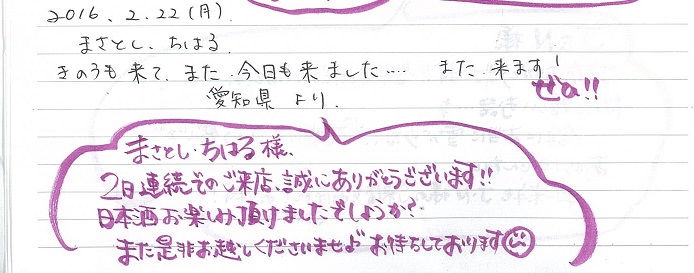 2016. 2. 22 (月).
まさとし、ちはる.
きのうも来て、また 今日も来ました…. また、来ます!
ぜひ!!
愛知県 より.
まさとし・ちはる様、
2日連続でのご来店、誠にありがとうございます!!
日本酒お楽しみ頂けましたでしょうか?
また是非お越しくださいませ♪ お待ちしております☺